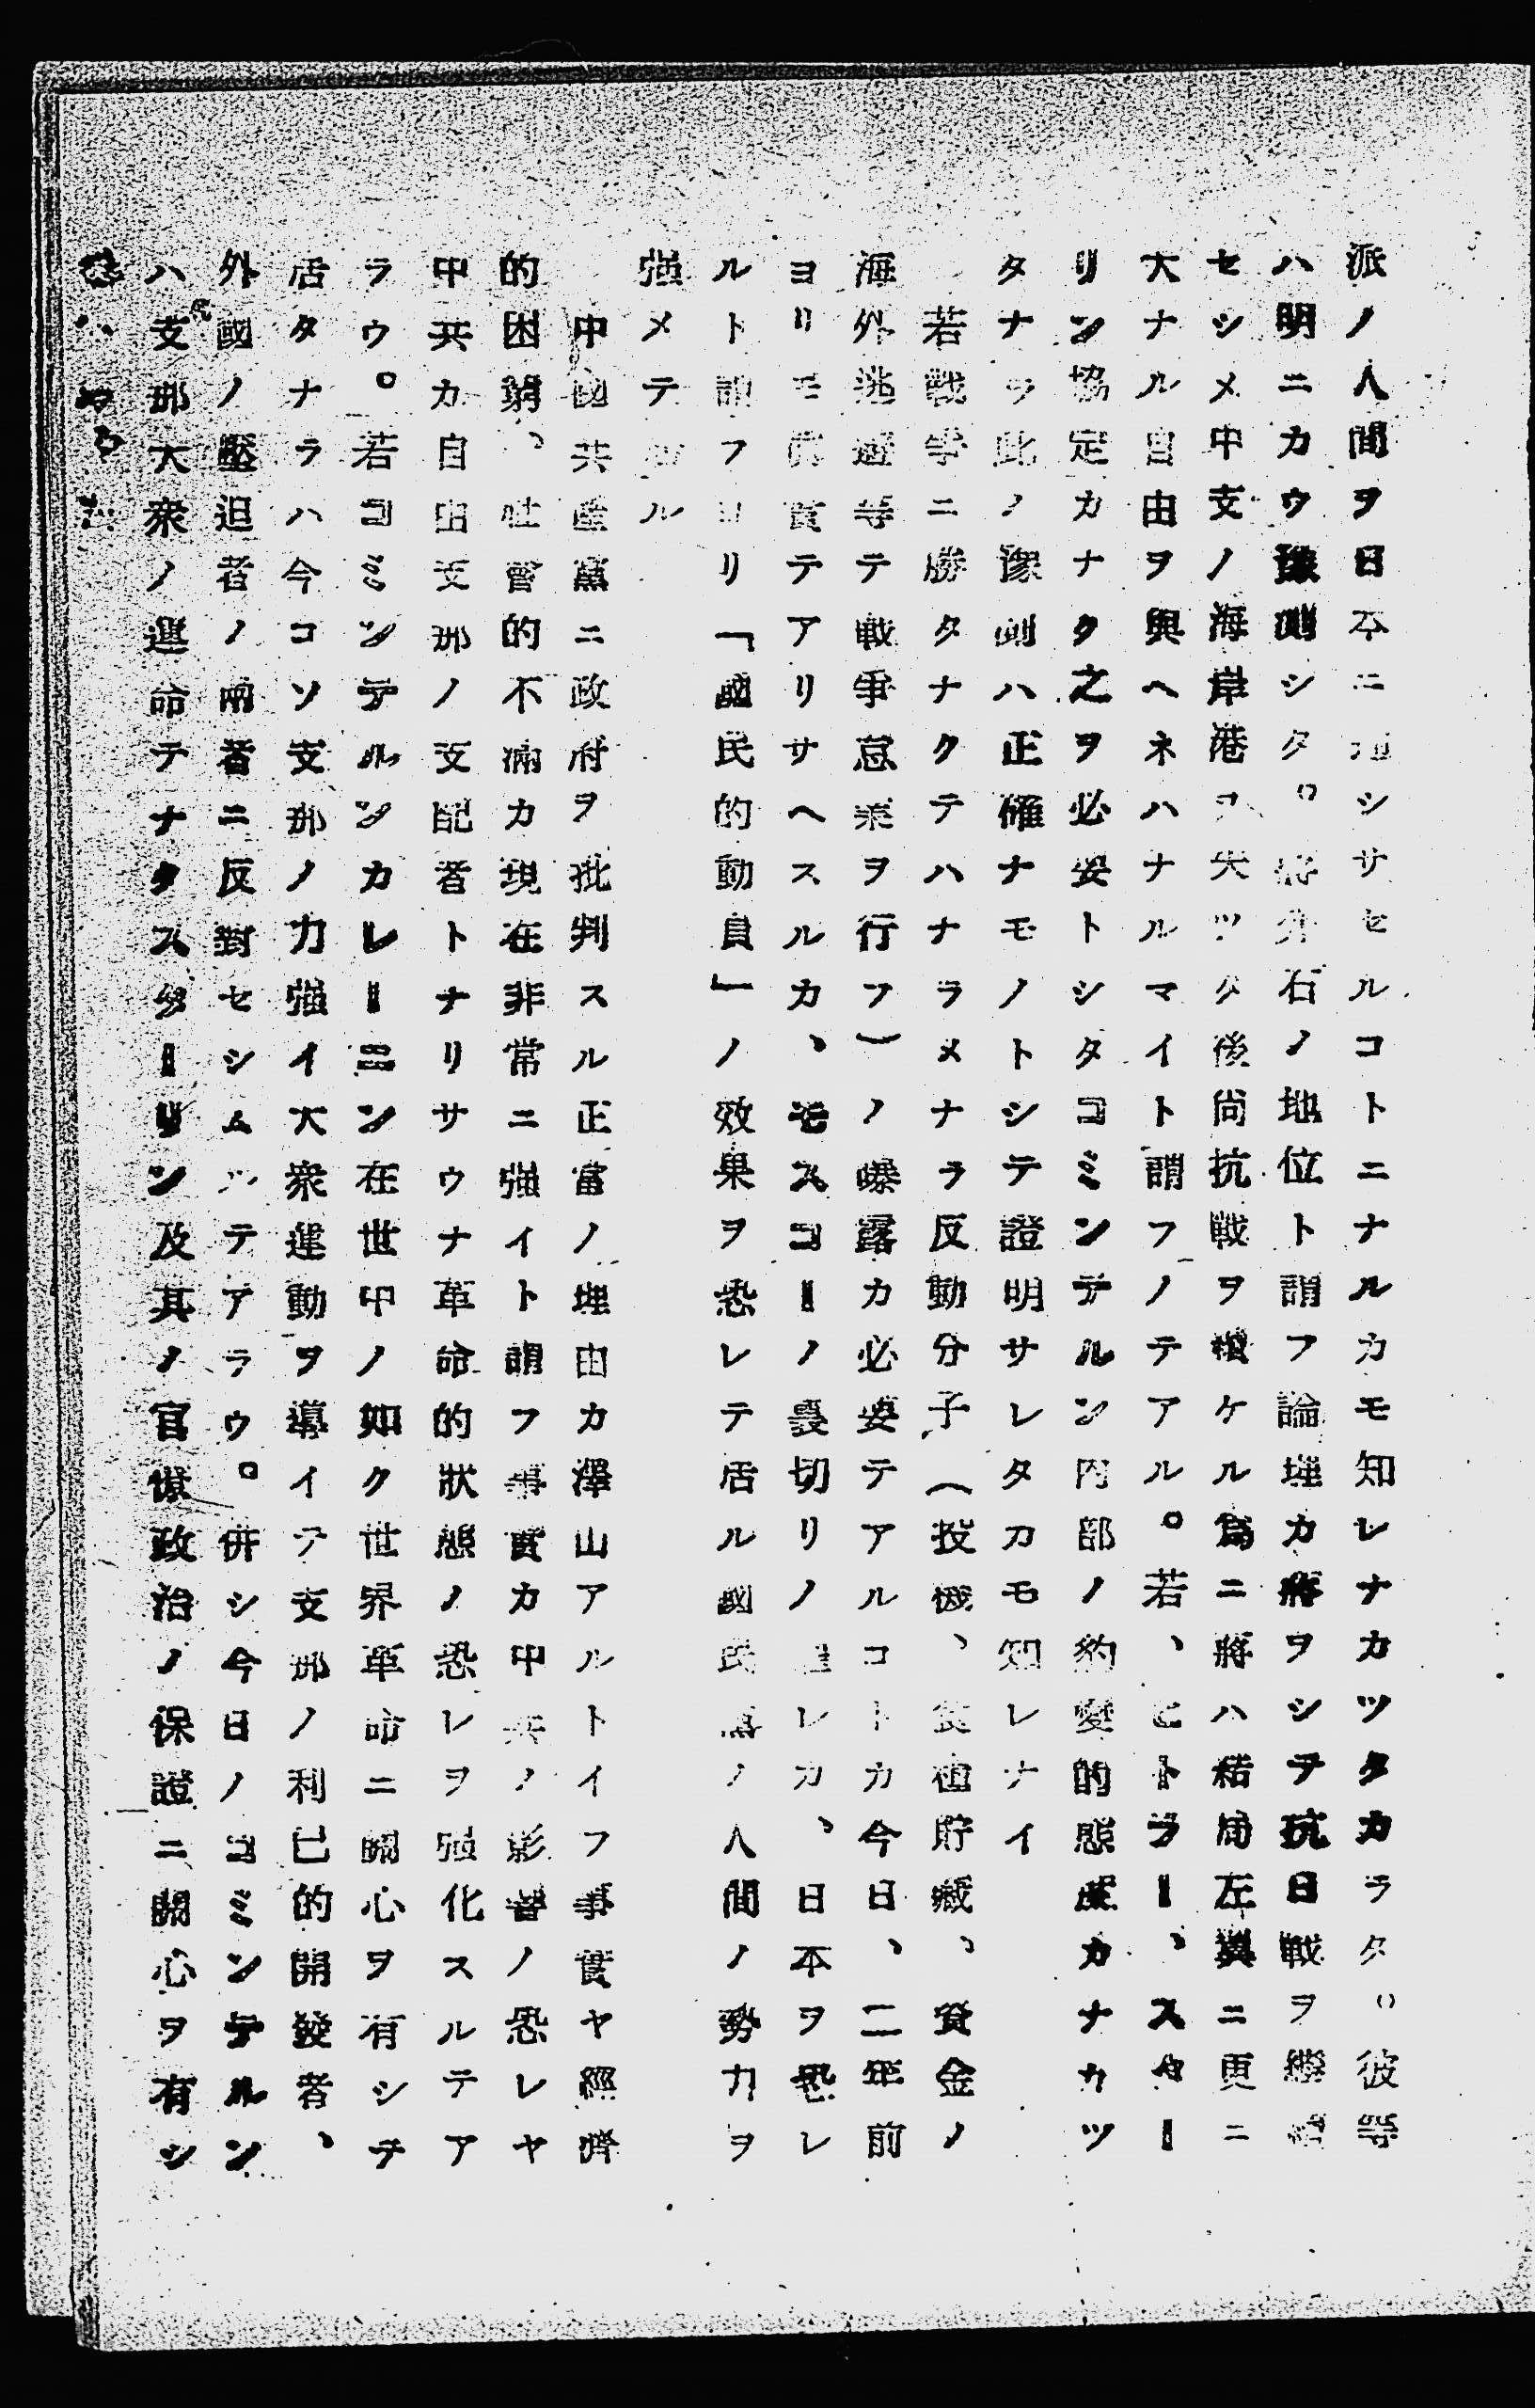 派ノ人間ヲ日本ニ通シサセルコトニナルカモ知レナカツタカラタ。彼等
ハ明ニカウ豫測シタ。蔣介石ノ地位ト謂フ論理カ蔣ヲシテ抗日戰ヲ繼續
セシメ中支ノ海岸港ヲ失ツタ後尙抗戰ヲ續ケル爲ニ蔣ハ結局左翼ニ更ニ
大ナル自由ヲ與ヘネハナルマイト謂フノテアル。若、ヒトラー、スターリ
リン協定カナクタ之ヲ必要トシタコミンテルン內部ノ豹變的態度カナカツ
タナラ此ノ豫測ハ正確ナモノトシテ證明サレタカモ知レナイ
若戰爭ニ勝タナクテハナラメナラ反動分子(投機、食糧貯藏、資金ノ
海外逃避等テ戰爭怠業ヲ行フ)ノ曝露カ必要テアルコトカ今日、二年前
ヨリモ眞實テアリサヘスルカ、モスコーノ裏切リノ レカ、日本ヲ恐レ
ルト謂フヨリ「國民的動員」ノ效果ヲ恐レテ居ル國民黨ノ人間ノ勢力ヲ
强メテ居ル
中國共產黨ニ政府ヲ批判スル正當ノ理由カ澤山アルトイフ事實ヤ經濟
的困窮、社會的不滿カ現在非常ニ强イト謂フ事實カ中共ノ影響ノ恐レヤ
中共カ自由支那ノ支配者トナリサウナ革命的狀態ノ恐レヲ强化スルテア
ラウ。若コミンテルンカレーニン在世中ノ如ク世界革命ニ關心ヲ有シテ
居タナラハ今コソ支那ノ力强イ大衆運動ヲ導イテ支那ノ利己的開發者、
外國ノ壓迫者ノ兩者ニ反對セシムルテアラウ。併シ今日ノコミンテルン
ハ支那大衆ノ運命テナクスターリン及其ノ官僚政治ノ保證ニ關心ヲ有シ